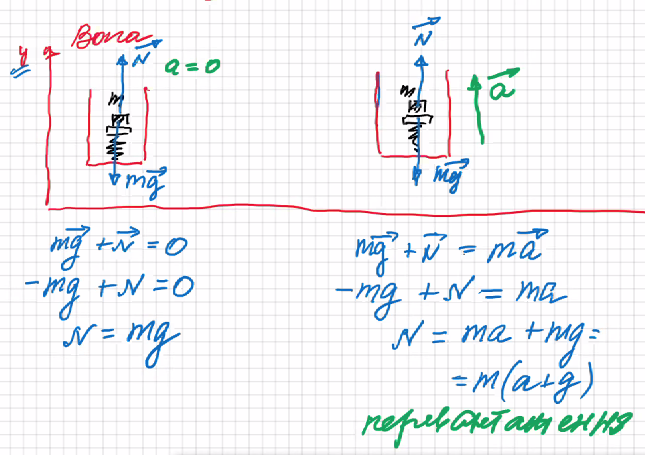 y
Вага
N⃗
a = 0
m
mg⃗
mg⃗ + N⃗ = 0
-mg + N = 0
N = mg
N⃗
m
a⃗
mg⃗
mg⃗ + N⃗ = ma⃗
-mg + N = ma
N = ma + mg =
= m(a+g)
перевантаження